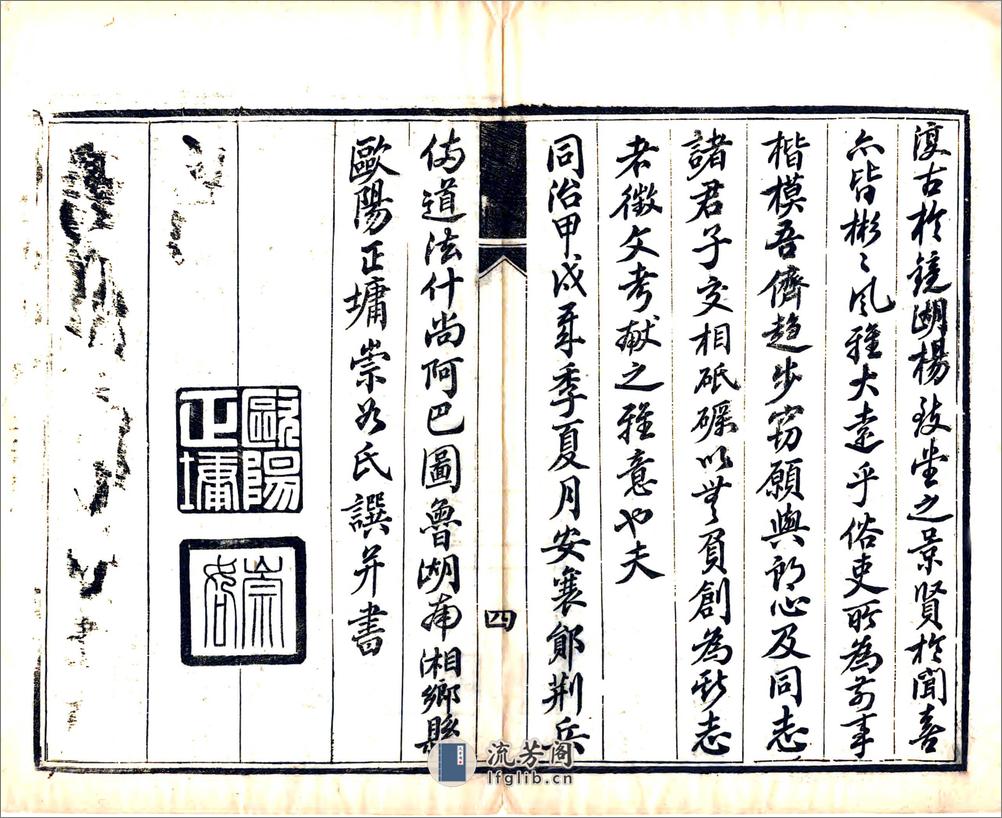 復古於鏡湖楊致堂之景賢於聞喜
亦皆彬彬風雅大遠乎俗吏所為前事
楷模吾儕趨步竊願與朗心及同志
諸君子交相砥礪以無負創為新志
者徵文考獻之雅意也夫
同治甲戌年季夏月安襄鄖荊兵
備道法什尚阿巴圖魯湖南湘鄉縣
歐陽正墉崇如氏譔并書
歐陽正墉
崇如
四
流芳阁
lfglib.cn